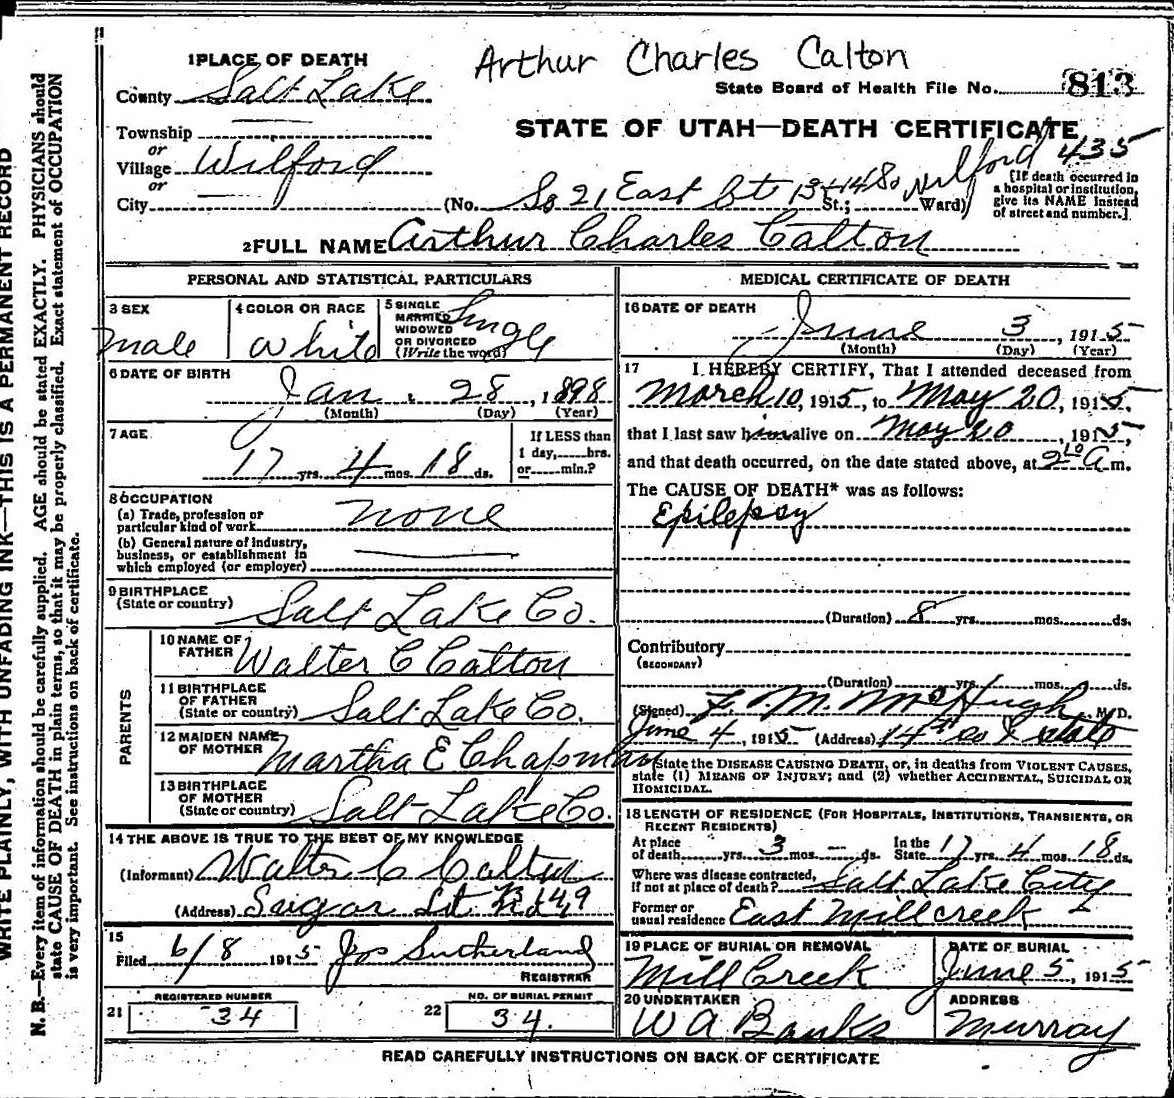 Arthur Charles Calton
1 PLACE OF DEATH
County Salt Lake
State Board of Health File No. 813
Township
or
Village Wilford
or
City
STATE OF UTAH—DEATH CERTIFICATE
435
(No. So 21 East bt 13 + 14 So St.; Wilford Ward)
[If death occurred in
a hospital or institution,
give its NAME instead
of street and number.]
2 FULL NAME Arthur Charles Calton
PERSONAL AND STATISTICAL PARTICULARS
3 SEX
male
4 COLOR OR RACE
White
5 SINGLE
MARRIED
WIDOWED
OR DIVORCED
(Write the word)
Single
6 DATE OF BIRTH
Jan. 28, 1898
(Month) (Day) (Year)
7 AGE
17 yrs. 4 mos. 18 ds.
If LESS than
1 day,......hrs.
or......min.?
8 OCCUPATION
(a) Trade, profession or
particular kind of work none
(b) General nature of industry,
business, or establishment in
which employed (or employer)
9 BIRTHPLACE
(State or country) Salt Lake Co.
PARENTS
10 NAME OF
FATHER Walter C Calton
11 BIRTHPLACE
OF FATHER
(State or country) Salt Lake Co.
12 MAIDEN NAME
OF MOTHER Martha E Chapman
13 BIRTHPLACE
OF MOTHER
(State or country) Salt Lake Co.
14 THE ABOVE IS TRUE TO THE BEST OF MY KNOWLEDGE
(Informant) Walter C Calton
(Address) Sugar
15
Filed 6/8 1915 Jos Sutherland
REGISTRAR
REGISTERED NUMBER
21 34
NO. OF BURIAL PERMIT
22 34.
MEDICAL CERTIFICATE OF DEATH
16 DATE OF DEATH
June 3, 1915
(Month) (Day) (Year)
17 I HEREBY CERTIFY, That I attended deceased from
March 10, 1915, to May 20, 1915,
that I last saw him alive on May 20, 1915,
and that death occurred, on the date stated above, at 2 10 A m.
The CAUSE OF DEATH* was as follows:
Epilepsy
(Duration) 8 yrs. mos. ds.
Contributory
(SECONDARY)
(Duration) yrs. mos. ds.
(Signed) F. M. McHugh M.D.
June 4, 1915 (Address) 14th So & State
State the DISEASE CAUSING DEATH, or, in deaths from VIOLENT CAUSES,
state (1) MEANS OF INJURY; and (2) whether ACCIDENTAL, SUICIDAL OR
HOMICIDAL.
18 LENGTH OF RESIDENCE (FOR HOSPITALS, INSTITUTIONS, TRANSIENTS, OR
RECENT RESIDENTS)
At place
of death yrs. 3 mos. — ds. In the
State 17 yrs. 4 mos. 18 ds.
Where was disease contracted,
if not at place of death? Salt Lake City
Former or
usual residence East Millcreek
19 PLACE OF BURIAL OR REMOVAL
Mill Creek
DATE OF BURIAL
June 5, 1915
20 UNDERTAKER
W A Banks
ADDRESS
Murray
READ CAREFULLY INSTRUCTIONS ON BACK OF CERTIFICATE
WRITE PLAINLY, WITH UNFADING INK—THIS IS A PERMANENT RECORD
N. B.—Every item of information should be carefully supplied. AGE should be stated EXACTLY. PHYSICIANS should
state CAUSE OF DEATH in plain terms, so that it may be properly classified. Exact statement of OCCUPATION
is very important. See instructions on back of certificate.